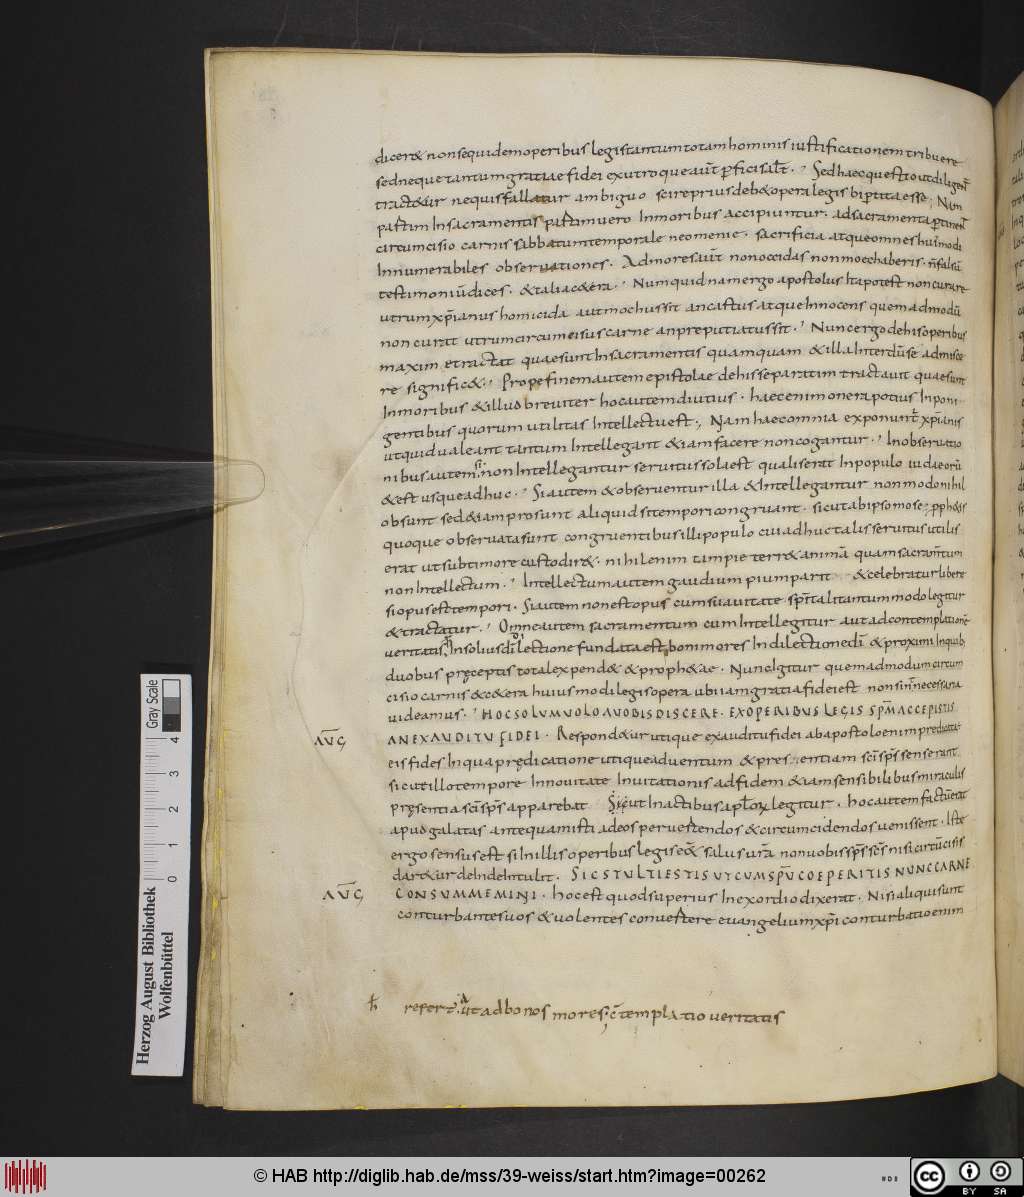 dicer& non sequidem operibus legis tantum totam hominis iustificationem tribuere
sed neque tantum gratiae fidei ex utroque aut̄ p̄fici salt̄. Sed haec questio ut diligent̄
tract&ur ne quis fallatur ambiguo scire prius deb& opera legis bipertita esse; Nam
partim In sacramentis partim vero In moribus accipiuntur. ad sacramenta p̄tinent̄
circumcisio carnis sabbatum temporale neomenie. sacrificia atque omnes hui᾽modi
Innumerabiles observationes. Ad mores aut̄ non occidas non moechaberis. n̄ falsū
testimoniū dices. & talia c&era. Numquidnam ergo apostolus Ita potest non curare
utrum xp̄ianus homicida aut mochus sit an castus atque Innocens quemadmodū
non curat utrum circumcisus carne an preputiatus sit. Nunc ergo de his operibus
maxim etractat quae sunt In sacramentis quamquam & illa Interdū se admisce
re signific&; Prope finem autem epistolae de his separatim tractavit quae sunt
In moribus & illud breviter hoc autem diutius. haec enim onera potius Inponi
gentibus quorum utilitas Intellectu est; Nam haec omnia exponunt̄ xp̄ianis
ut quid valeant tantum Intellegant & iam facere non cogantur. In observatio
nibus autem si non Intellegantur servitus sola est qualis erat In populo iudaeorū
& est usque adhuc. Si autem & observentur illa & Intellegantur non modo nihil
obsunt sed & iam prosunt aliquid si tempori congruant. sicut ab ipso mose pph&is
quoque observata sunt congruentibus illi populo cui adhuc talis servitus utilis
erat ut sub timore custodir&. nihil enim tam pie terr& animā quam sacram̄tum
non Intellectum. Intellectum autem gaudium pium parit & celebratur libere
si opus est tempori. Si autem non est opus cum suavitate sp̄itali tantummodo legitur
& tractatur. Omne autem sacramentum cum Intellegitur aut ad contemplationē
veritatis In solius dī lectione fundata est boni mores In dilectione dī & proximi In quib;
duobus pręceptis tota lex pend& & proph&ae. Nunc Igitur quemadmodum circum
cisio carnis & c&era huiusmodi legis opera ubi iam gratia fidei est non sint̄ necessaria
videamus. HOC SOLUM VOLO A VOBIS DISCERE. EX OPERIBUS LEGIS SPM̄ ACCEPISTIS
AUḠ AN EX AUDITU FIDEI. Respond&ur utique ex auditu fidei ab apostolo enim predicata
eis fides In qua prędicatione utique adventum & presentiam sc̄i sp̄s senserant
sicut illo tempore In novitate Invitationis ad fidem & iam sensibilibus miraculis
pręsentia sc̄i sp̄s apparebat Sicut In actibus apl̄oꝝ legitur. hoc autem factū erat
apud galatas antequam isti ad eos pervertendos & circumcidendos venissent. Iste
ergo sensus est si In illis operibus legis eēt salus vr̄a non vobis sp̄s sc̄s nisi circūcisis
dar&ur deInde Intulit. SIC STULTI ESTIS UT CUM SPŪ COEPERITIS NUNC CARNE
AUḠ CONSUMMEMINI. hoc est quod superius In exordio dixerat. Nisi aliqui sunt
conturbantes vos & volentes convertere evangelium xp̄i conturbatio enim
refert᷑. ut ad bonos mores; c̄templatio veritatis
Herzog August Bibliothek
Wolfenbüttel
0 1 2 3 4
Gray Scale
© HAB http://diglib.hab.de/mss/39-weiss/start.htm?image=00262
cc BY SA